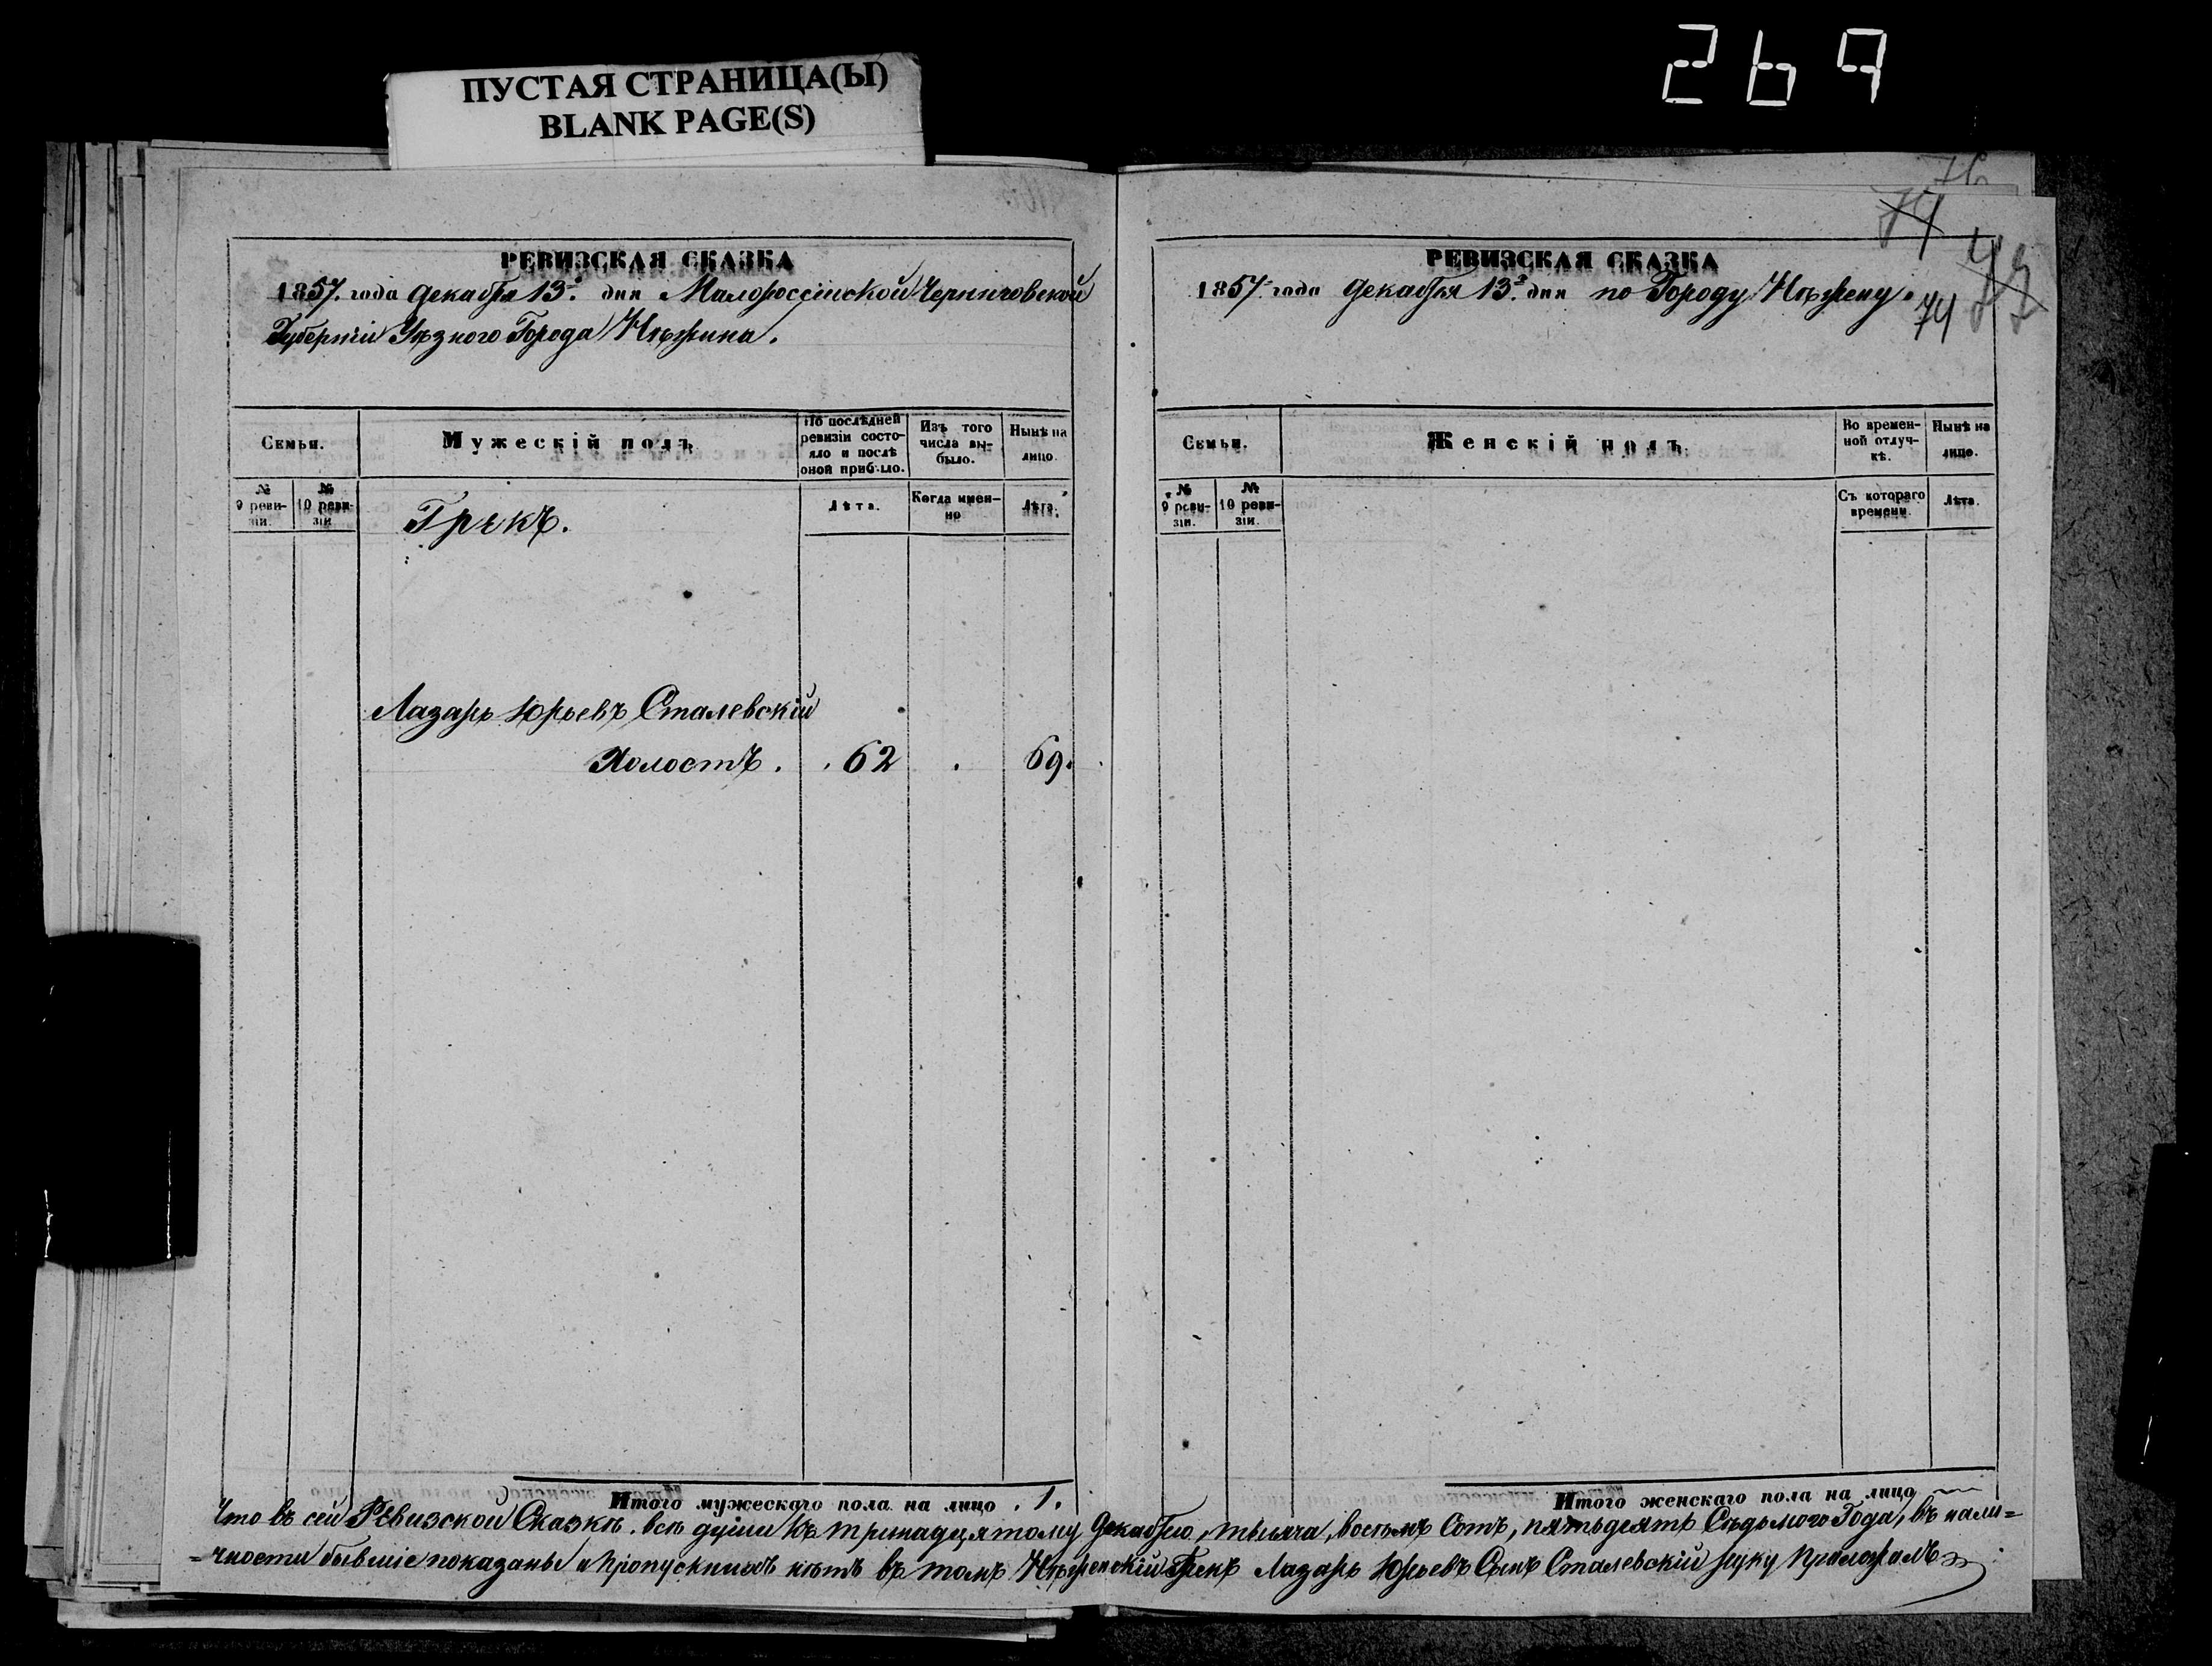 ПУСТАЯ СТРАНИЦА(Ы)
BLANK PAGE(S)
269
РЕВИЗСКАЯ СКАЗКА
1857. года Декабря 13го дня Малороссійской Черниговской
Губерніи Уѣзного Города Нѣжина.
Семьи.
Мужескій полъ
По послѣдней ревизіи состояло и послѣ оной прибыло.
Изъ того числа выбыло.
Нынѣ на лицо.
№ 9 ревизіи.
№ 10 ревизіи
Лѣта.
Когда именно
Лѣта.
Грекъ.
Лазарь Юрьевъ Сталевскій
Холостъ. 62 69.
Итого мужескаго пола на лицо . 1.
76
74
74
РЕВИЗСКАЯ СКАЗКА
1857 года Декабря 13го дня по Городу Нѣжену.
Семьи.
Женскій полъ
Во временной отлучкѣ.
Нынѣ на лицо.
№ 9 ревизіи.
№ 10 ревизіи.
Съ котораго времени.
Лѣта.
Итого женскаго пола на лицо
Что въ сей Ревизской Сказкѣ всѣ души къ тринадцятому Декабрю, тысяча, восемь Сотъ, пятьдесятъ Седьмого Года, въ нали=
=чности бывшіе показаны и пропускныхъ нѣтъ въ томъ Нѣженскій Грекъ Лазарь Юрьевъ Сынъ Сталевскій руку приложилъ